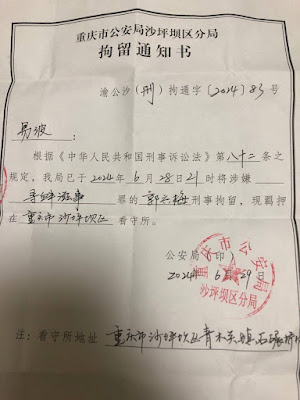 重庆市公安局沙坪坝区分局
拘留通知书
渝公沙(刑)拘通字〔2024〕83号
易波:
根据《中华人民共和国刑事诉讼法》第八十二条之
规定,我局已于2024年6月28日21时将涉嫌
寻衅滋事罪的郭云梅刑事拘留,现羁押
在重庆市沙坪坝区看守所。
公安局(印)
2024年6月29日
重庆市公安局
沙坪坝区分局
注:看守所地址 重庆市沙坪坝区青木关镇石